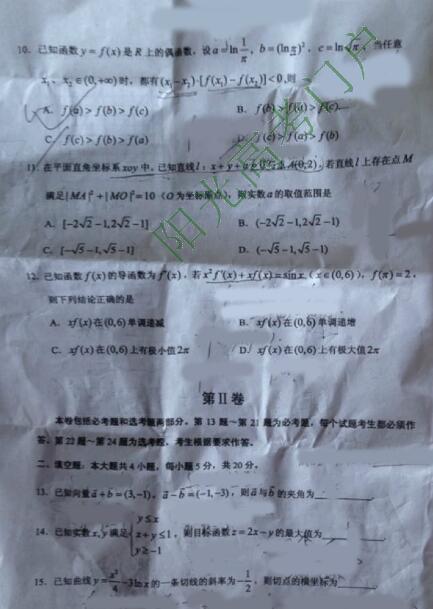 10. 已知函数 y = f(x) 是 R 上的偶函数，设 a = ln 1/π，b = (lnπ)²，c = ln√π，当任意
x₁、x₂∈(0,+∞) 时，都有 (x₁−x₂)·[f(x₁)−f(x₂)]<0，则
A. f(a) > f(b) > f(c)    B. f(b) > f(a) > f(c)
C. f(c) > f(b) > f(a)    D. f(c) > f(a) > f(b)
11. 在平面直角坐标系 xoy 中，已知直线 l：x + y + a = 0 与点 A(0,2)，若直线 l 上存在点 M
满足 |MA|² + |MO|² = 10（O 为坐标原点），则实数 a 的取值范围是
A. [−2√2−1, 2√2−1]    B. (−2√2−1, 2√2−1)
C. [−√5−1, √5−1]    D. (−√5−1, √5−1)
12. 已知函数 f(x) 的导函数为 f′(x)，若 x²f′(x) + xf(x) = sin x（x∈(0,6)），f(π) = 2，
则下列结论正确的是
A. xf(x) 在 (0,6) 单调递减    B. xf(x) 在 (0,6) 单调递增
C. xf(x) 在 (0,6) 上有极小值 2π    D. xf(x) 在 (0,6) 上有极大值 2π
第Ⅱ卷
本卷包括必考题和选考题两部分。第 13 题～第 21 题为必考题，每个试题考生都必须作
答。第 22 题～第 24 题为选考题，考生根据要求作答。
二、填空题：本大题共 4 小题，每小题 5 分，共 20 分。
13. 已知向量 a + b = (3,−1)，a − b = (−1,−3)，则 a 与 b 的夹角为
14. 已知实数 x, y 满足 { y ≤ x  x + y ≤ 1  y ≥ −1，则目标函数 z = 2x − y 的最大值为
15. 已知曲线 y = x²/4 − 3ln x 的一条切线的斜率为 −1/2，则切点的横坐标为
阳光高考门户